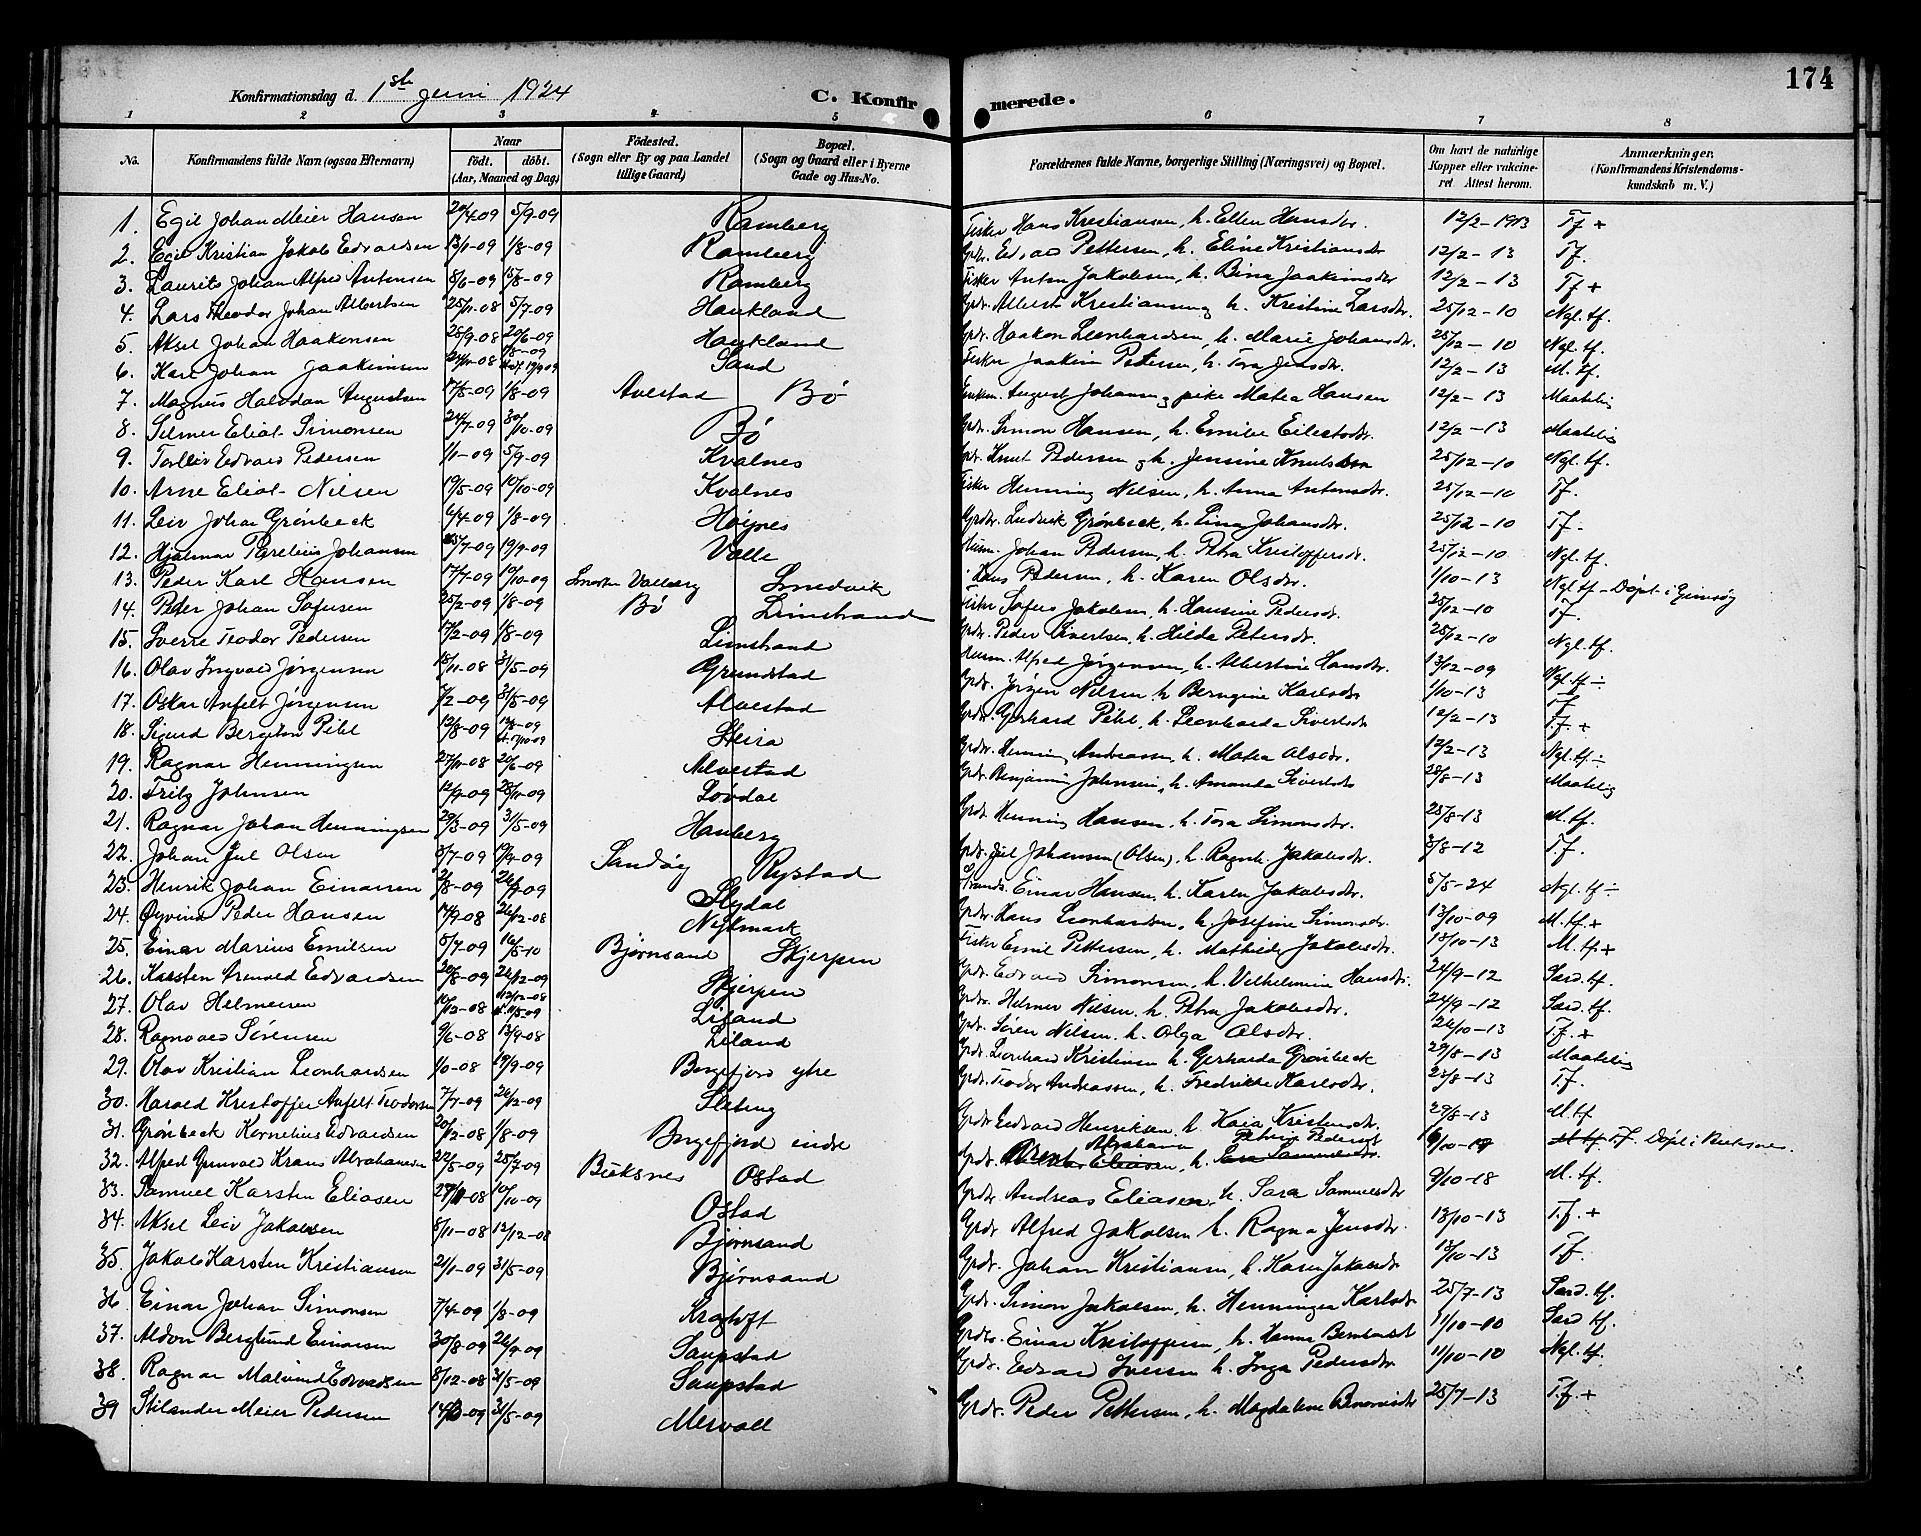 Konfirmationsdag d. 1ste Juni 1924
C. Konfirmerede.
174
1 2 3 4 5 6 7 8
No. Konfirmandens fulde Navn (ogsaa Efternavn) Naar födt. döbt. (Aar, Maaned og Dag) Födested. (Sogn eller By og paa Landet tillige Gaard) Bopæl. (Sogn og Gaard eller i Byerne Gade og Hus-No. Forældrenes fulde Navne, borgerlige Stilling (Næringsvei) og Bopæl. Om havt de naturlige Kopper eller vakcineret. Attest herom. Anmærkninger. (Konfirmandens Kristendomskundskab m. V.)
1. Egil Johan Meier Hansen 20/4-09 5/9-09 Ramberg Fisker Hans Kristiansen, h. Ellen Hansdr. 12/2-1913 T.f +
2. Egil Kristian Jakob Edvardsen 13/1-09 1/8-09 Ramberg Grdr. Edvard Pettersen, h. Eline Kristiansdr 12/2-13 T.f.
3. Laurits Johan Alfred Antonsen 8/6-09 15/8-09 Ramberg Fisker Anton Jakobsen, h. Bina Joakimsdr 12/2-13 T.f +
4. Lars Theodor Johan Albertsen 25/11-08 5/7-09 Haukland Grdr. Albert Kristiansen, h. Kristine Larsdr. 25/12-10 Ngl. tf.
5. Aksel Johan Haakonsen 25/9-08 20/6-09 Haukland Grdr. Haakon Leonhardsen, h. Marie Johansdr. 25/12-10 Ngl. tf.
6. Karl Johan Joakimsen 24/11-08 1/8-09 Sand Fisker Joakim Petersen, h. Tora Jensdr. 12/2-13 M. tf.
7. Magnus Halvdan Augustsen 17/5-09 1/8-09 Alvestad Bø Enkem. August Johansen, pike Matea Hansen 12/2-13 Maatelig
8. Selmer Eliot Simonsen 24/7-09 30/10-09 Bø Grdr. Simon Hansen, h. Emilie Eilertsdr. 12/2-13 Maatelig
9. Torleiv Edvard Pedersen 1/1-09 5/9-09 Kvalnes Grdr. Knut Pedersen og h. Jensine Knutsen 25/12-10 Ngl. tf.
10. Arne Eliot Nilsen 19/5-09 10/10-09 Kvalnes Fisker Henning Nilsen, h. Anna Antonsdr. 25/12-10 T.f.
11. Leiv Johan Grønbeck 6/4-09 1/8-09 Høynes Grdr. Ludvik Grønbeck, h. Lina Johansdr. 25/12-10 T.f.
12. Hjalmar Parelius Johansen 25/7-09 19/9-09 Valle Husm. Johan Pedersen, h. Petra Kristoffersdr. 25/12-10 Ngl. tf.
13. Peder Karl Hansen 17/7-09 10/10-09 Valberg Smedvik Hans Pedersen, h. Karen Olsdr. 1/10-13 Ngl tf - Døpt i Gimsøy
14. Peder Johan Sofusen 25/2-09 1/8-09 Bø Limstrand Fisker Sofus Jakobsen, h. Hansine Pedersdr. 25/12-10 T.f.
15. Sverre Teodor Pedersen 17/2-09 1/8-09 Limstrand Grdr. Peder Sivertsen, h. Hilda Petersdr. 25/12-10 Ngl. tf.
16. Olav Ingvald Jørgensen 15/11-08 31/5-09 Grundstad Husm. Alfred Jørgensen, h. Albertine Hansdr. 13/12-09 Ngl. tf ÷
17. Oskar Anfelt Jørgensen 3/2-09 31/5-09 Alvestad Grdr. Jørgen Nilsen h. Berngine Karlsdr 1/10-13 T.f
18. Sigurd Bergiton Pihl 12/8-09 Steira Grdr. Gerhard Pihl, h. Leonharda Sivertsdr 12/2-13 T.f. +
19. Ragnar Henningsen 27/11-08 20/6-09 Alvestad Grdr. Henning Andreassen, h. Matea Olsdr. 12/2-13 Ngl. tf ÷
20. Fritz Johnsen 12/9-09 28/11-09 Løvdal Grdr. Benjamin Johnsen, h. Amanda Sivertsdr 28/8-13 Maatelig
21. Ragnar Johan Henningsen 29/3-09 31/5-09 Hauberg Grdr. Henning Hansen, h. Tora Simonsdr. 28/8-13 M. tf.
22. Johan Jul Olsen 3/7-09 19/9-09 Sandøy Rystad Grdr. Jul Johansen (Olsen), h. Ragnh. Jakobsdr. 3/8-12 T.f.
23. Henrik Johan Einarsen 2/8-09 26/9-09 Slydal Strands. Einar Hansen, h. Karen Jakobsdr. 5/5-24 Ngl. tf ÷
24. Øyvind Peder Hansen 14/9-08 26/12-08 Nykmark Grdr. Hans Leonhardsen, h. Josefine Simonsdr. 13/10-09 M. tf. +
25. Einar Marius Emilsen 5/7-09 16/5-10 Bjørnsand Skjerpen Fisker Emil Pettersen, h. Mathilde Jakobsdr. 18/10-13 M. tf. +
26. Karsten Arnvad Edvardsen 20/8-09 26/12-09 Skjerpen Grdr. Edvard Simonsen, h. Vilhelmine Hansdr. 24/9-12 Særd. tf.
27. Olav Helmersen 10/12-08 Liland Grdr. Helmer Nilsen, h. Petra Jakobsdr. 24/9-12 Særd. tf.
28. Ragnvald Sørensen 9/6-08 13/9-08 Liland Grdr. Søren Nilsen, h. Olga Olsdr. 26/10-13 T.f. +
29. Olav Kristian Leonhardsen 1/6-08 19/9-09 Borgefjord ytre Grdr. Leonhard Kristensen h. Gerharda Grønbeck 29/8-13 Maatelig
30. Harald Kristoffer Anfelt Teodorsen 7/7-09 26/12-09 Sleteng Grdr. Teodor Andreassen, h. Fredrikke Karlsdr. 28/8-13 T.f.
31. Grønbeck Kornelius Edvardsen 20/12-08 1/8-09 Borgefjord indre Grdr. Edvard Henriksen, h. Kaia Kristensdr. 29/8-13 M. tf
32. Alfred Gunvald Krans Abrahamsen 22/5-09 25/7-09 Buksnes Ostad Grdr. Bernt Abraham Eliassen, h. Petrine Pedersdr Sara Samuelsdr. M. tf. T.f. Døpt i Buksnes
33. Samuel Karsten Eliasen 29/11-08 10/10-09 Ostad Grdr. Andreas Eliasen, h. Sara Samuelsdr 9/10-18 M. tf.
34. Aksel Leiv Jakobsen 8/11-08 12/12-08 Bjørnsand Grdr. Alfred Jakobsen h. Ragna Jensdr. 18/10-13 T.f. +
35. Jakob Karsten Kristiansen 21/1-09 31/5-09 Bjørnsand Grdr. Johan Kristiansen, h. Karen Jakobsdr 13/10-13 T.f.
36. Einar Johan Simonsen 7/4-09 1/8-09 Kragtoft Grdr. Simon Jakobsen, h. Henningea Karlsdr. 25/7-13 Særd. tf.
37. Aldon Berglund Einarsen 30/8-09 26/9-09 Saupstad Grdr. Einar Kristoffersen, h. Hanna Berntsdr 11/10-10 Særd tf.
38. Ragnar Malvind Edvardsen 8/12-08 31/5-09 Saupstad Grdr. Edvard Iversen h. Inga Pedersdr 11/10-10 Ngl. tf.
39 Stilander Meier Pedersen 14/3-09 31/5-09 Mervoll Grdr. Peder Pettersen, h. Magdalene Benonisdr 25/7-13 T.f. +